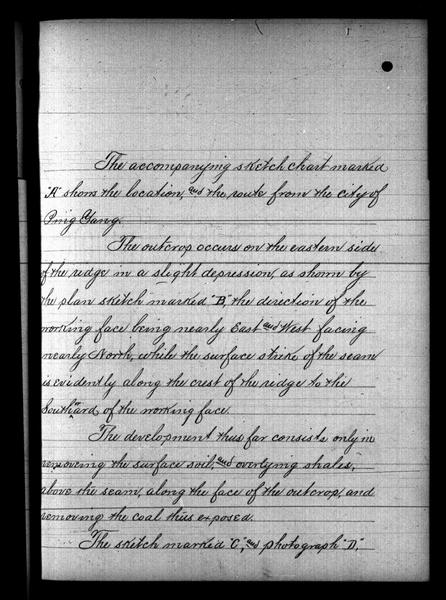 The accompanying sketch chart marked
"A" shows the location, and the route from the city of
Ping Yang.
The outcrop occurs on the eastern side
of the ridge in a slight depression, as shown by
the plan sketch marked "B", the direction of the
working face being nearly East and West facing
nearly North, while the surface strike of the seam
is evidently along the crest of the ridge to the
Southward of the working face.
The development thus far consists only in
removing the surface soil, and overlying shales,
above the seam, along the face of the outcrop, and
removing the coal thus exposed.
The sketch marked "C", and photograph "D",